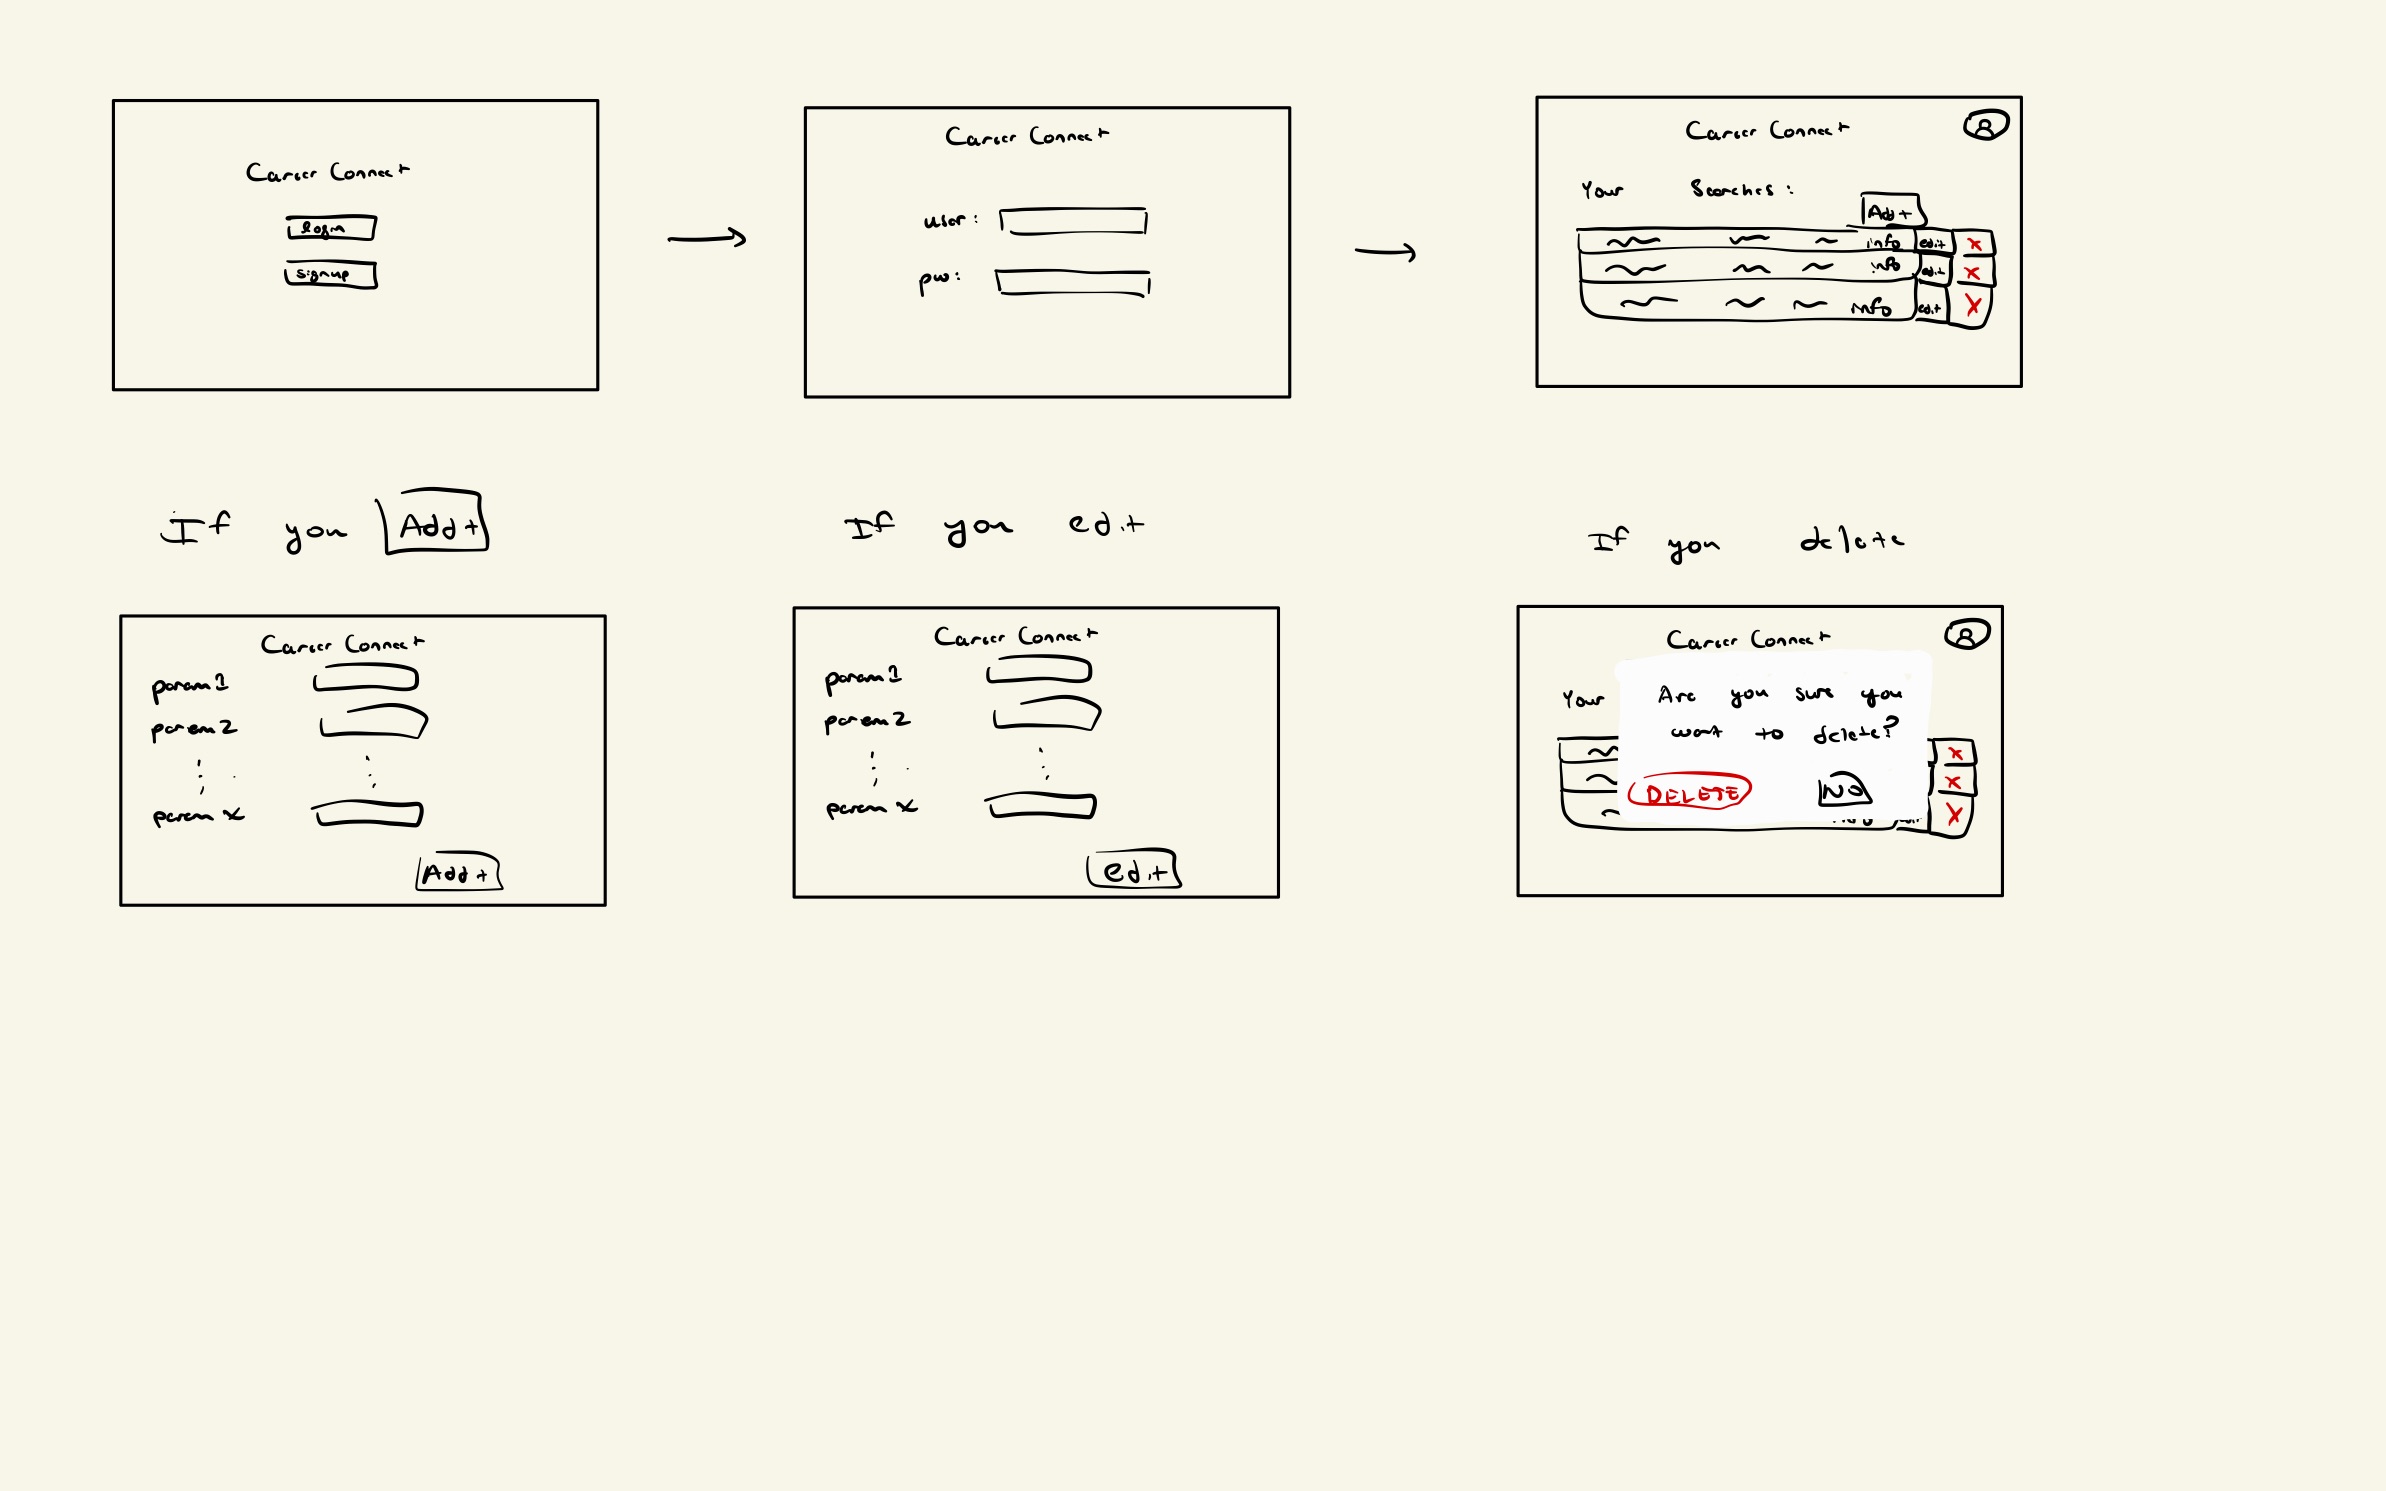 Career Connect
login
signup
Career Connect
user:
pw:
Career Connect
Your Searches:
Add +
info edit x
info edit x
info edit x
If you Add +
Career Connect
param 1
param 2
param x
Add +
If you edit
Career Connect
param 1
param 2
param x
edit
If you delete
Career Connect
Your
Are you sure you
want to delete?
DELETE NO
x
x
x